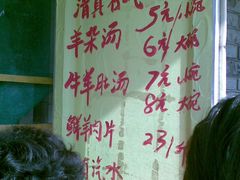 清真
5元/小碗
羊杂汤 6元/大碗
牛羊肚汤 7元/小碗
8元/大碗
鲜羊肉片 23/斤
汽水